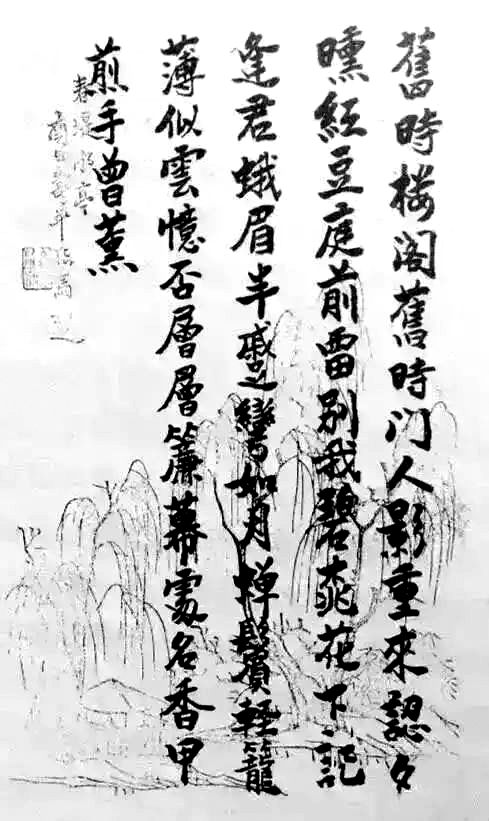 舊時楼阁舊時门人影重來認夕
曛紅豆庭前留別我碧桃花下記
逢君蛾眉半蹙彎如月蟬鬢輕籠
薄似雲憶否層層簾幕處名香甲
煎手曾薰
春堤水亭